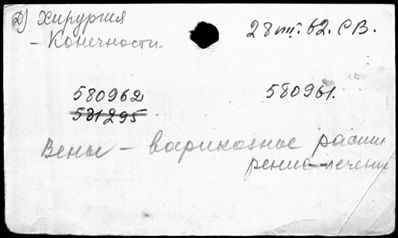 2) Хирургия
– Конечности.
28 VIII. 62. СВ.
580962
580961.
581295
Вены – варикозное расши
рение – лечение